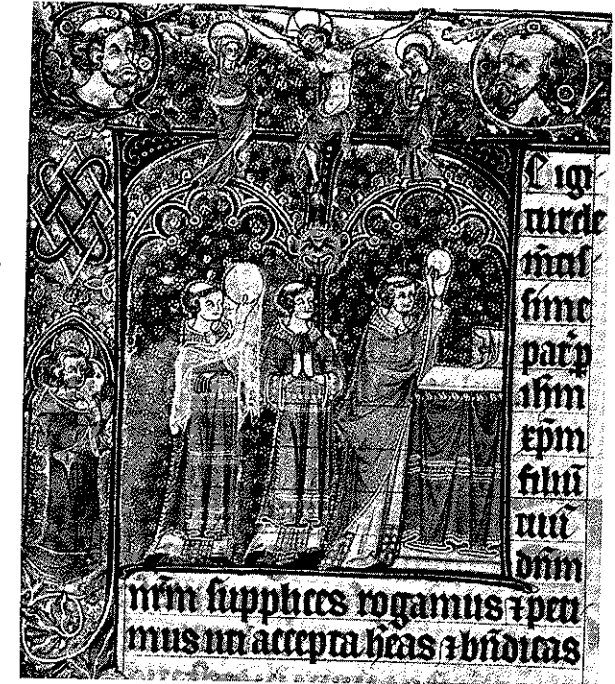 E igi
tur cle
m̄tis
sime
pat̄ p̄
ihm
xp̄m
filiū
tuū
dn̄m
nr̄m supplices rogamus ⁊ peti
mus uti accepta h̄eas ⁊ bn̄dicas